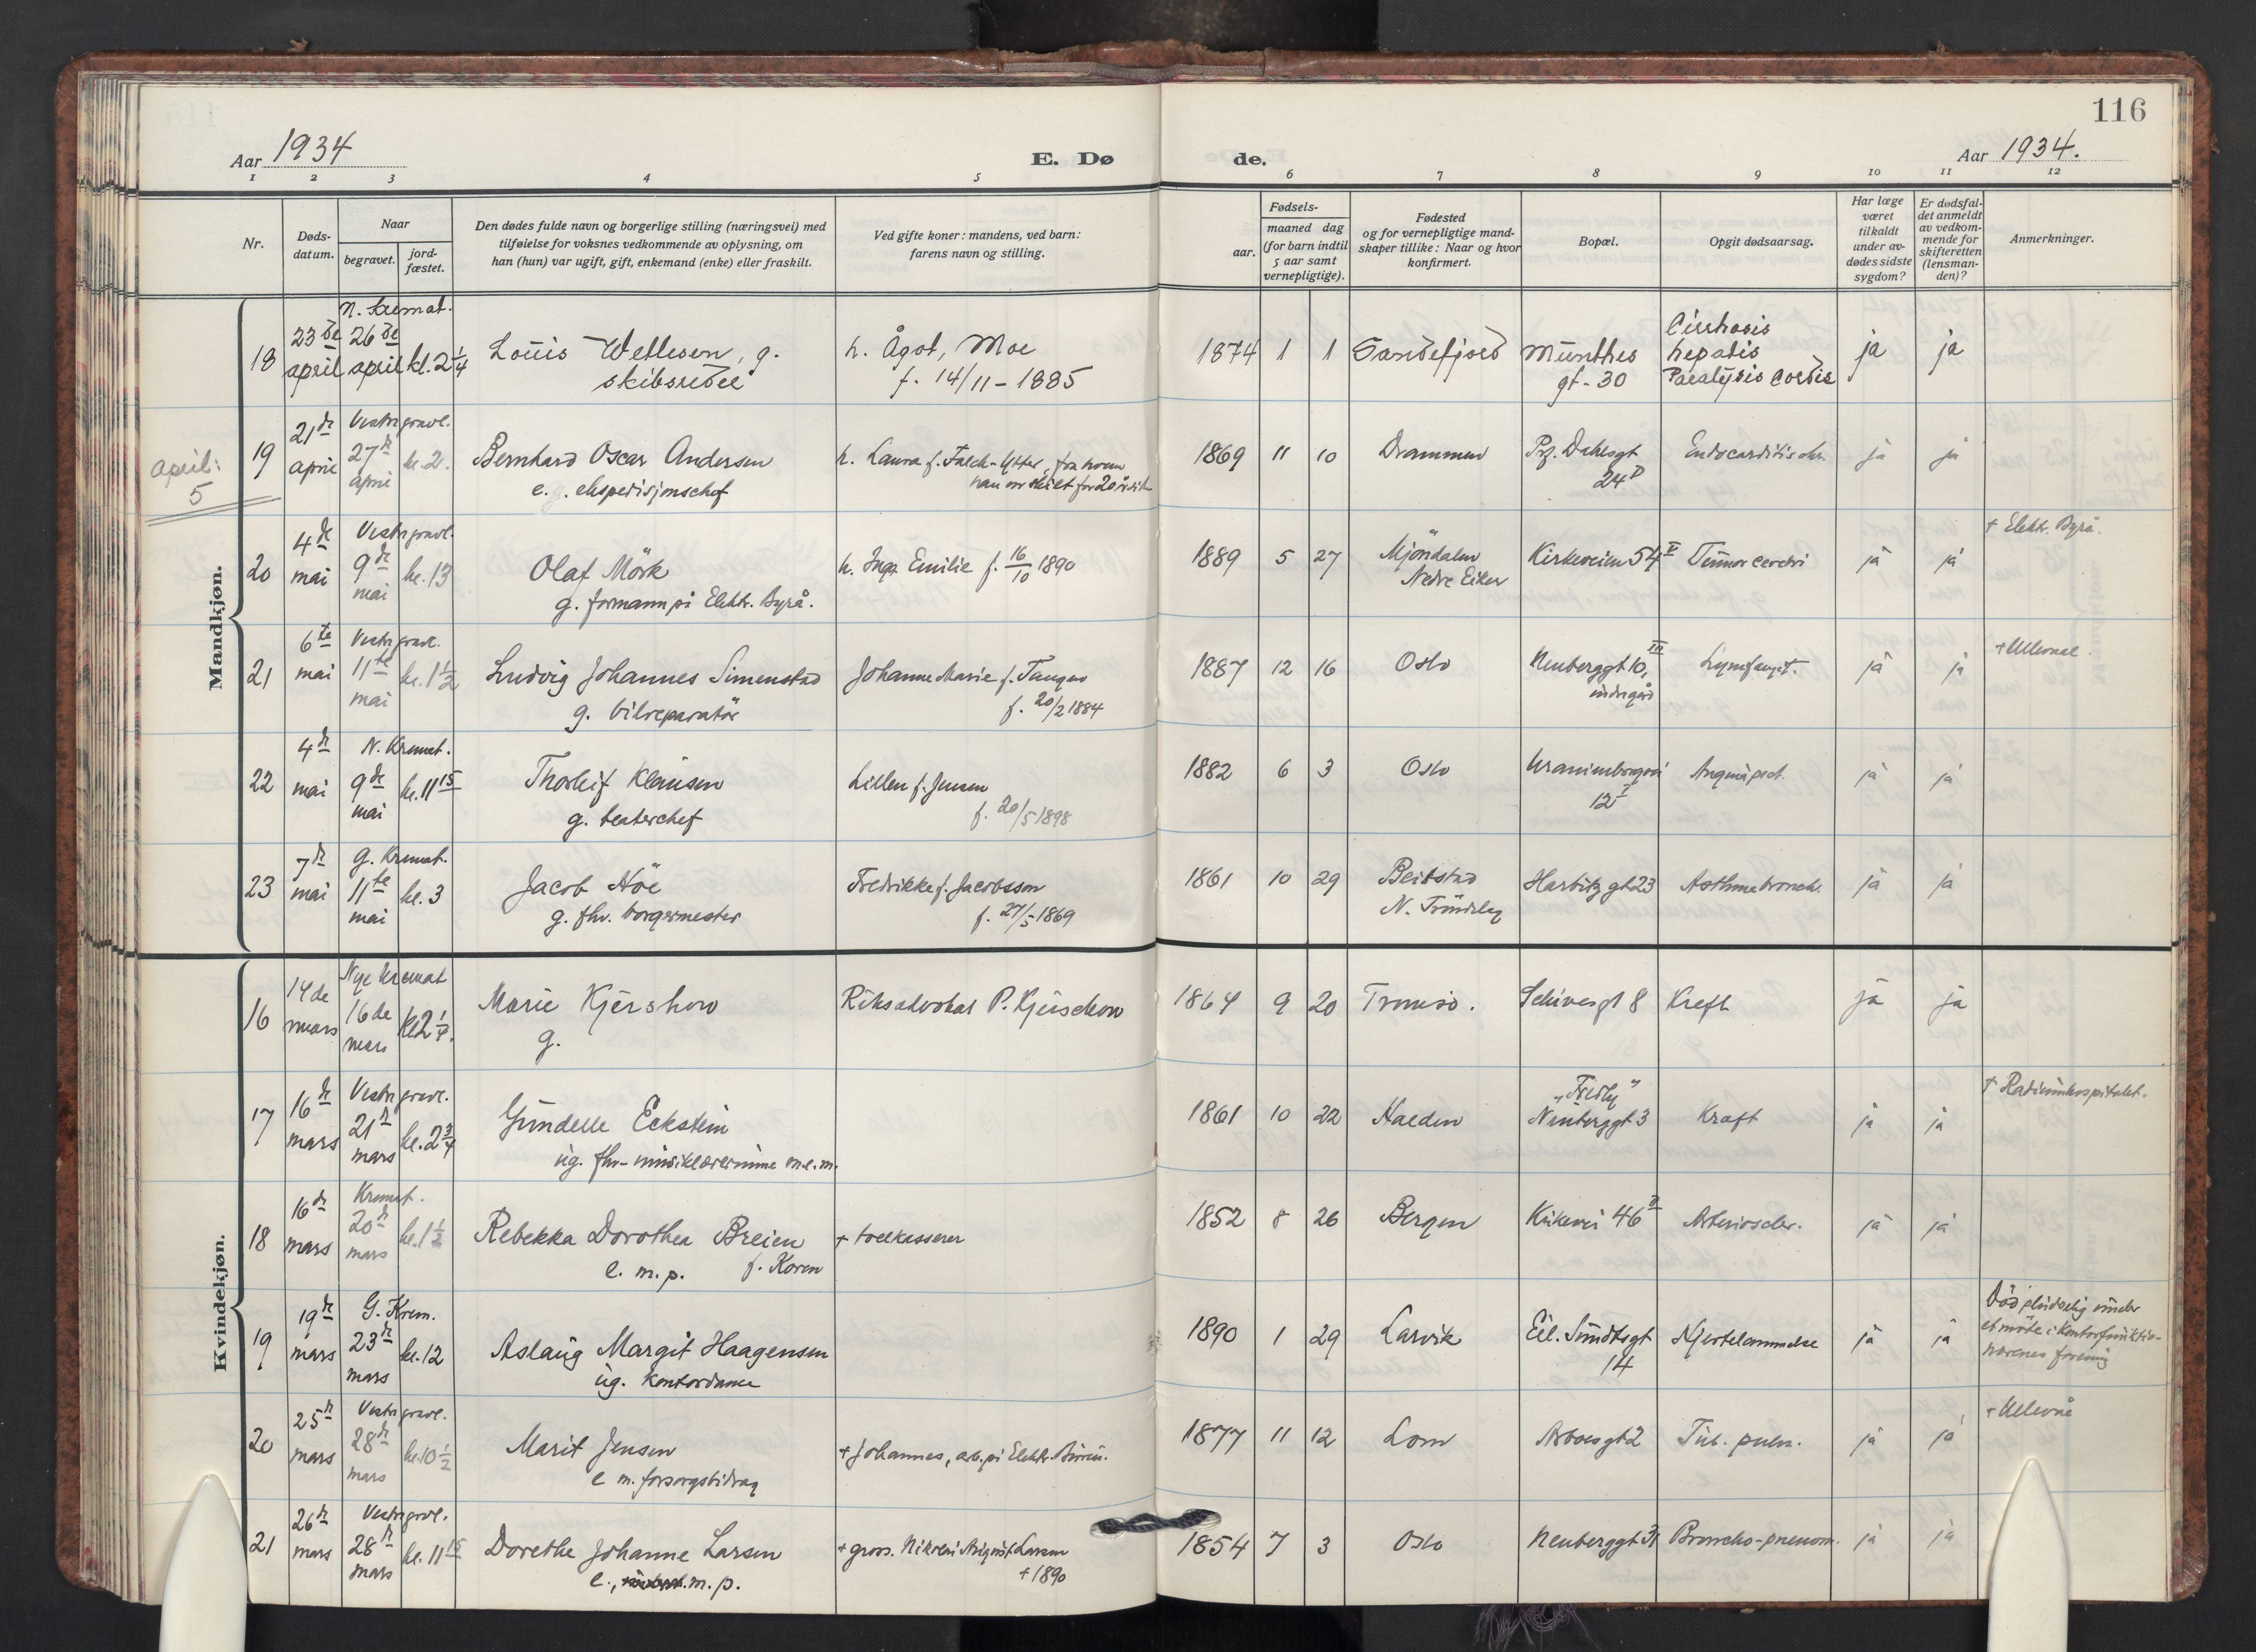 116
Aar 1934
E. Dø
de.
Aar 1934.
1 2 3 4 5 6 7 8 9 10 11 12
Nr.
Døds-
datum.
Naar
begravet.
jord-
fæstet.
Den dødes fulde navn og borgerlige stilling (næringsvei) med
tilføielse for voksnes vedkommende av oplysning, om
han (hun) var ugift, gift, enkemand (enke) eller fraskilt.
Ved gifte koner: mandens, ved barn:
farens navn og stilling.
Fødsels-
aar.
maaned dag
(for barn indtil
5 aar samt
vernepligtige).
Fødested
og for vernepligtige mand-
skaper tillike: Naar og hvor
konfirmert.
Bopæl.
Opgit dødsaarsag.
Har læge
været
tilkaldt
under av-
dødes sidste
sygdom?
Er dødsfal-
det anmeldt
av vedkom-
mende for
skifteretten
(lensman-
den)?
Anmerkninger.
Mandkjøn.
april:
5
N. Kremat.
18 23de april 26de april kl. 2 1/4
Louis Wettesen, g.
skibsreder
h. Ågot, Moe
f. 14/11 - 1885
1874 1 1 Sandefjord
Munthes
gt. 30
Cirrhosis
hepatis
Paralysis cordis
ja ja
Vestre gravl.
19 21de april 27de april kl. 2.
Bernhard Oscar Andersen
e. ekspedisjonschef
h. Laura f. Falch-Ytter, fra hvem
han var skilt for 20 år siden
1869 11 10 Drammen
Prf. Dahlsgt
24
Endocarditis chr.
ja ja
Vestre gravl.
20 4de mai 9de mai kl. 13
Olaf Mörk
g. formann på Elektr. Byrå.
h. Inga Emilie f. 16/10 1890
1889 5 27 Mjöndalen
Nedre Eiker
Kirkeveien 54 V
Tumor cerebri
ja ja
+ Elektr. Byrå.
Vestre gravl.
21 6te mai 11te mai kl. 1 1/2
Ludvig Johannes Simenstad
g. bilreparatör
Johanne Marie f. Tangen
f. 20/2 1884
1887 12 16 Oslo
Neuberggt 10, III
indregård
ja ja
+ Ulleval.
N. Kremat.
22 4de mai 9de mai kl. 11 15
Thorleif Klausen
g. teaterchef
Lillen f. Jensen
f. 20/5 1898
1882 6 3 Oslo
Uranienborgvei
12 I
Angina pect.
ja ja
g. Kremat.
23 7de mai 11te mai kl. 3
Jacob Höe
g. fhv. borgermester
Fredrikke f. Jacobsson
f. 27/5 1869
1861 10 29 Beitstad
N. Tröndelag
Harbitz gt 23
Asthma bronch.
ja ja
Kvindekjøn.
Nye kremat
16 14de mars 16de mars kl 2 1/4.
Marie Kjerschow
g.
Riksadvokat P. Kjerschow
1864 9 20 Tromsö.
Schivesgt 8
Kreft
ja ja
Vestre gravl.
17 16de mars 21de mars kl. 2 3/4
Gundelle Eckstein
ug. fhv. musiklærerinne m.e.m.
1861 10 22 Halden
"Fredly"
Neuberggt 3
Kraft
ja ja
+ Radiumhospitalet.
Kremat.
18 16de mars 20de mars kl. 1 1/2
Rebekka Dorothea Breien
e. m. p. f. Koren
+ tollkasserer
1852 8 26 Bergen
Kirkevei 46 II
Arterioscler.
ja ja
G. Krem.
19 19de mars 23de mars kl. 12
Aslaug Margit Haagensen
ug. kontordame
1890 1 29 Larvik
Eil. Sundtsgt
14
Hjertelammelse
ja ja
Död pludselig under
et möte i Kontorfunktio-
nærenes forening
Vestre gravl.
20 25de mars 28de mars kl. 10 1/2
Marit Jensen
e m. forsorgsbidrag
+ Johannes, arb. på Elektr. Büreau.
1877 11 12 Lom
Arboesgt 2
Tub. pulm.
ja ja
+ Ullevål
Vestre gravl.
21 26de mars 28de mars kl. 11 15
Dorethe Johanne Larsen
e., m. p.
+ gross. Nikolai August Larsen
+ 1890
1854 7 3 Oslo
Neuberggt 31
Broncho-pneum.
ja ja